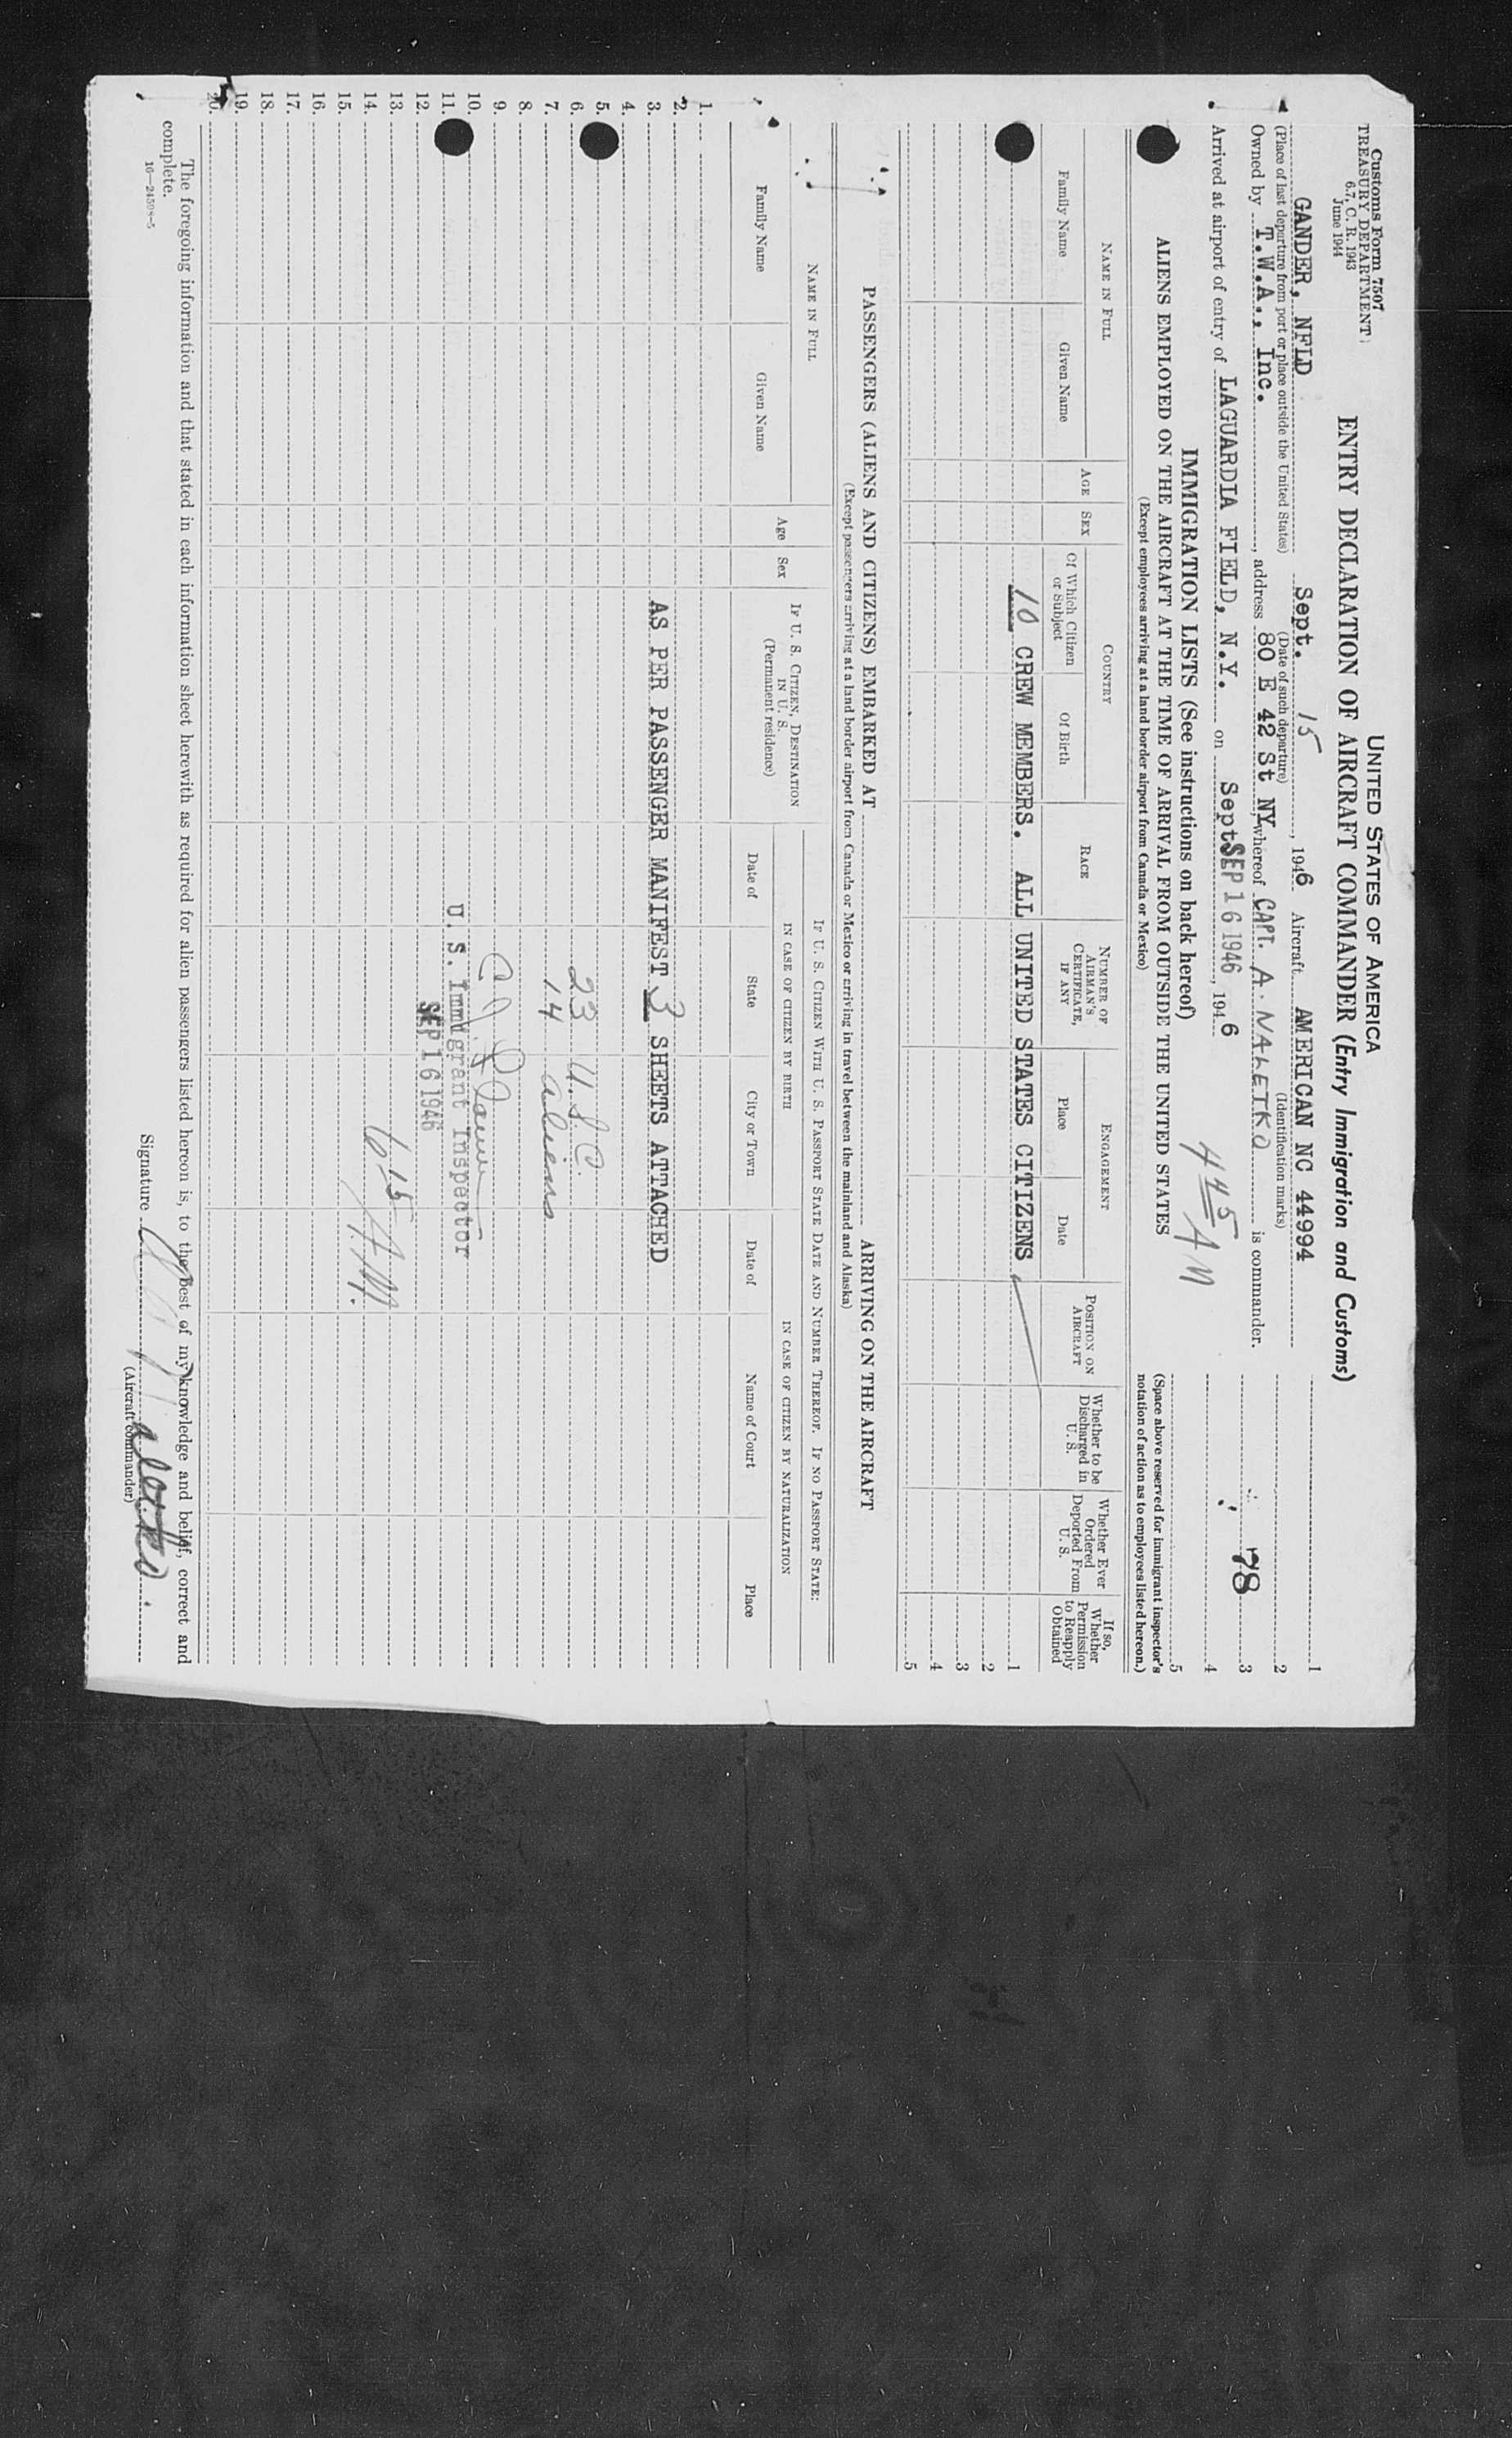 Customs Form 7507
TREASURY DEPARTMENT
6.7, C. R. 1943
June 1944
UNITED STATES OF AMERICA
ENTRY DECLARATION OF AIRCRAFT COMMANDER (Entry Immigration and Customs)
GANDER, NFLD Sept. 15, 1946 Aircraft AMERICAN NC 44994
(Place of last departure from port or place outside the United States) (Date of such departure) (Identification marks)
Owned by T.W.A., Inc., address 80 E 42 St NY, whereof CAPT. A. NALEIKO is commander.
Arrived at airport of entry of LAGUARDIA FIELD, N.Y. on Sept SEP 16 1946, 1946
4 45 AM
1
2
3
78
4
5
(Space above reserved for immigrant inspector's
notation of action as to employees listed hereon.)
IMMIGRATION LISTS (See instructions on back hereof)
ALIENS EMPLOYED ON THE AIRCRAFT AT THE TIME OF ARRIVAL FROM OUTSIDE THE UNITED STATES
(Except employees arriving at a land border airport from Canada or Mexico)
NAME IN FULL
Family Name
Given Name
AGE
SEX
COUNTRY
Of Which Citizen
or Subject
Of Birth
RACE
NUMBER OF
AIRMAN'S
CERTIFICATE,
IF ANY
ENGAGEMENT
Place
Date
POSITION ON
AIRCRAFT
Whether to be
Discharged in
U. S.
Whether Ever
Ordered
Deported From
U. S.
If so,
Whether
Permission
to Reapply
Obtained
10 CREW MEMBERS. ALL UNITED STATES CITIZENS
1
2
3
4
5
PASSENGERS (ALIENS AND CITIZENS) EMBARKED AT ARRIVING ON THE AIRCRAFT
(Except passengers arriving at a land border airport from Canada or Mexico or arriving in travel between the mainland and Alaska)
NAME IN FULL
Family Name
Given Name
Age
Sex
IF U. S. CITIZEN, DESTINATION
IN U. S.
(Permanent residence)
IF U. S. CITIZEN WITH U. S. PASSPORT STATE DATE AND NUMBER THEREOF. IF NO PASSPORT STATE:
IN CASE OF CITIZEN BY BIRTH
Date of
State
City or Town
IN CASE OF CITIZEN BY NATURALIZATION
Date of
Name of Court
Place
1.
2.
3. AS PER PASSENGER MANIFEST 3 SHEETS ATTACHED
4.
5.
6. 23 U.S.C.
7. 14 aliens
8.
9.
10.
11. U. S. Immigrant Inspector
12. SEP 16 1946
13.
14. 6 15 A.M.
15.
16.
17.
18.
19.
20.
The foregoing information and that stated in each information sheet herewith as required for alien passengers listed hereon is, to the best of my knowledge and belief, correct and
complete.
16—24598-5
Signature
(Aircraft commander)